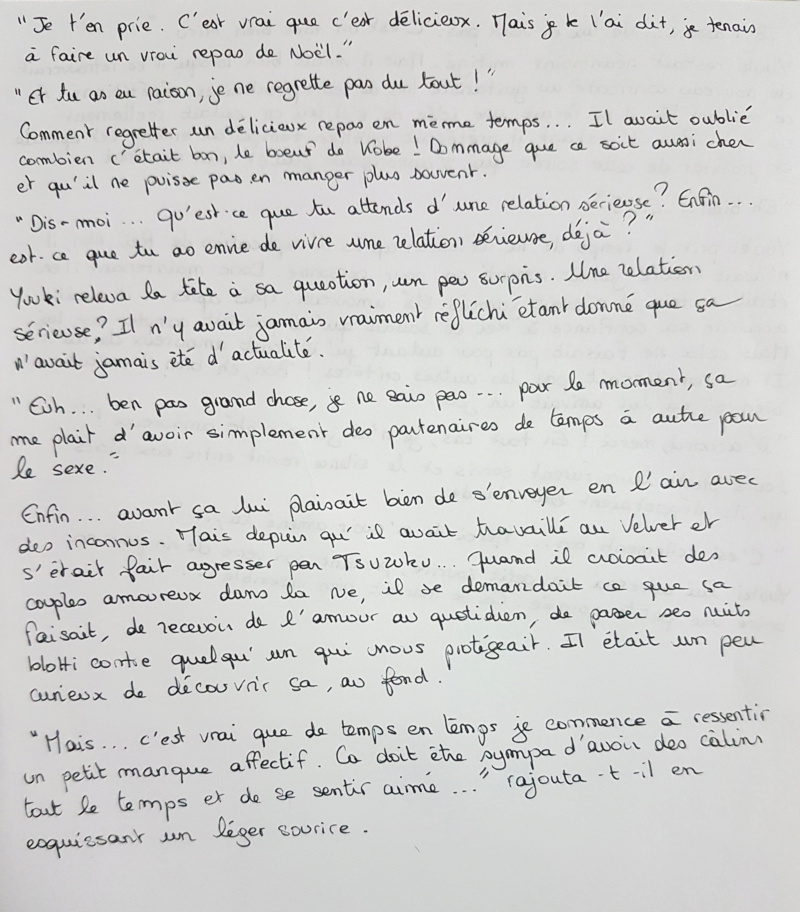 "Je t'en prie. C'est vrai que c'est délicieux. Mais je te l'ai dit, je tenais
à faire un vrai repas de Noël."
"Et tu as eu raison, je ne regrette pas du tout !"
Comment regretter un délicieux repas en même temps... Il avait oublié
combien c'était bon, le boeuf de Kobe ! Dommage que ce soit aussi cher
et qu'il ne puisse pas en manger plus souvent.
"Dis-moi... qu'est-ce que tu attends d'une relation sérieuse ? Enfin...
est-ce que tu as envie de vivre une relation sérieuse, déjà ?"
Yuuki releva la tête à sa question, un peu surpris. Une relation
sérieuse ? Il n'y avait jamais vraiment réfléchi étant donné que ça
n'avait jamais été d'actualité.
"Euh... ben pas grand chose, je ne sais pas... pour le moment, ça
me plait d'avoir simplement des partenaires de temps à autre pour
le sexe."
Enfin... avant ça lui plaisait bien de s'envoyer en l'air avec
des inconnus. Mais depuis qu'il avait travaillé au Velvet et
s'était fait agresser par Tsuzuku... Quand il croisait des
couples amoureux dans la rue, il se demandait ce que ça
faisait, de recevoir de l'amour au quotidien, de passer ses nuits
blotti contre quelqu'un qui nous protégeait. Il était un peu
curieux de découvrir ça, au fond.
"Mais... c'est vrai que de temps en temps je commence à ressentir
un petit manque affectif. Ca doit être sympa d'avoir des câlins
tout le temps et de se sentir aimé..." rajouta-t-il en
esquissant un léger sourire.